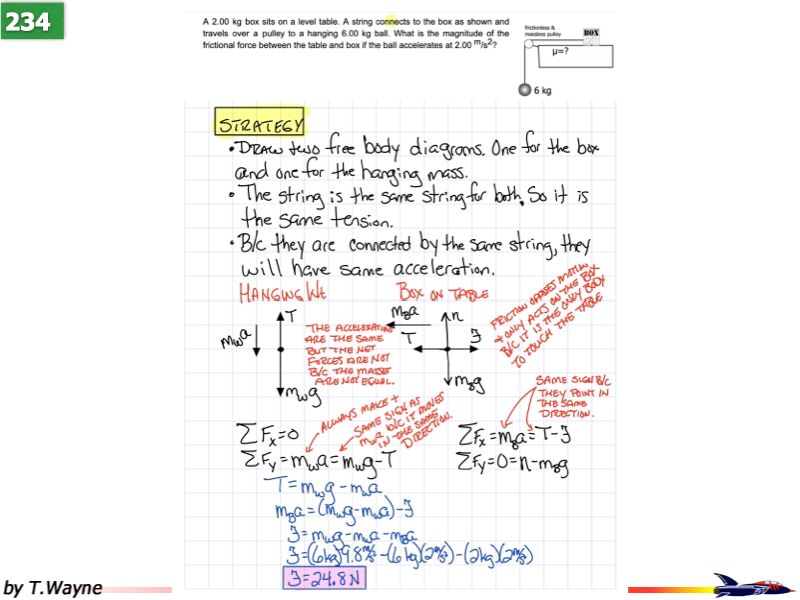 234
A 2.00 kg box sits on a level table. A string connects to the box as shown and
travels over a pulley to a hanging 6.00 kg ball. What is the magnitude of the
frictional force between the table and box if the ball accelerates at 2.00 m/s²?
frictionless &
massless pulley
BOX
μ=?
6 kg
STRATEGY
• DRAW two free body diagrams. One for the box
and one for the hanging mass.
• The string is the same string for both, So it is
the same tension.
• B/C they are connected by the same string, they
will have same acceleration.
HANGING Wt
BOX ON TABLE
FRICTION OPPOSES MOTION
+ ONLY ACTS ON THE BOX
B/C IT IS THE ONLY BODY
TO TOUCH THE TABLE
T
m_w a
m_w g
THE ACCELERATION
ARE THE SAME
BUT THE NET
FORCES ARE NOT
B/C THE MASSES
ARE NOT EQUAL.
m_B a
n
T
ℑ
m_B g
ALWAYS MAKE +
SAME SIGN AS
m_w a B/C IT MOVES
IN THE SAME
DIRECTION.
SAME SIGN B/C
THEY POINT IN
THE SAME
DIRECTION.
ΣF_x=0
ΣF_y=m_w a=m_w g-T
ΣF_x=m_B a=T-ℑ
ΣF_y=0=n-m_B g
T=m_w g-m_w a
m_B a=(m_w g-m_w a)-ℑ
ℑ=m_w g-m_w a-m_B a
ℑ=(6kg)9.8m/s²-(6kg)(2m/s²)-(2kg)(2m/s²)
ℑ=24.8N
by T.Wayne